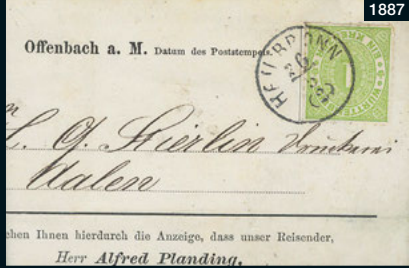 1887
Offenbach a. M. Datum des Poststempels.
HEILBRONN
EIN KREUZER
1
L. G. Stierlin Druckerei
Aalen
chen Ihnen hierdurch die Anzeige, dass unser Reisender,
Herr Alfred Planding,